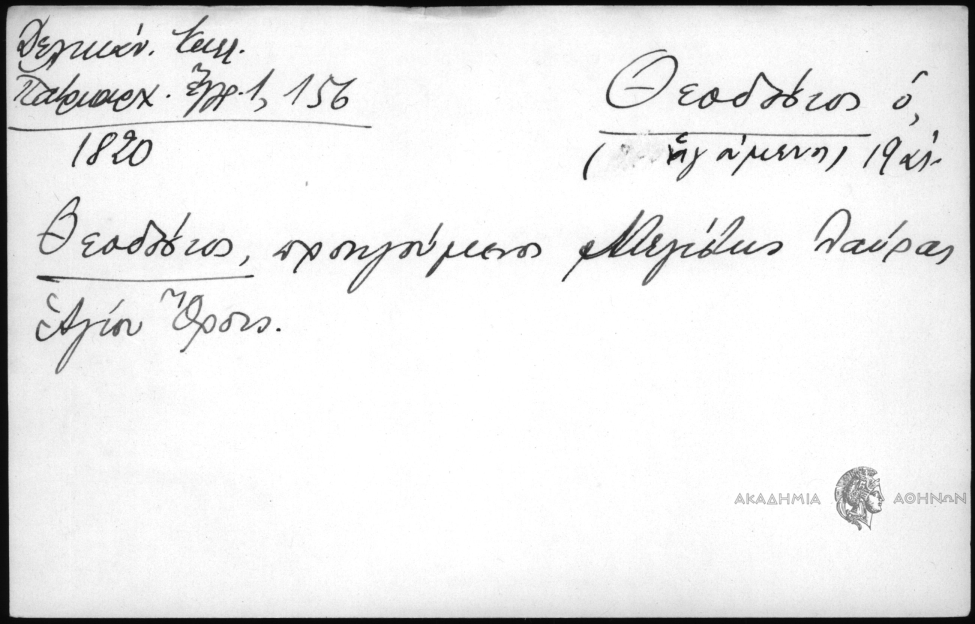 Δελικάν. Καλλ.
Πατριαρχ. Ἔγγρ. 1, 156
1820
Θεοδόσιος ὁ,
ἡγούμενος) 19 αἰ.
Θεοδόσιος, προηγούμενος Μεγίστης Λαύρας
Ἁγίου Ὄρους.
ΑΚΑΔΗΜΙΑ ΑΘΗΝΩΝ